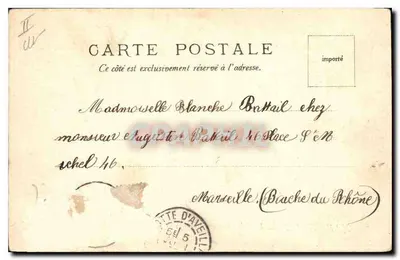 CARTE POSTALE
Ce côté est exclusivement réservé à l'adresse.
importé
Madmoiselle Blanche Battail chez
monsieur Augste Battail, 46 Place St M
ichel 46.
Marseille, (Bouche du Rhône)
TTE D'AVEIL